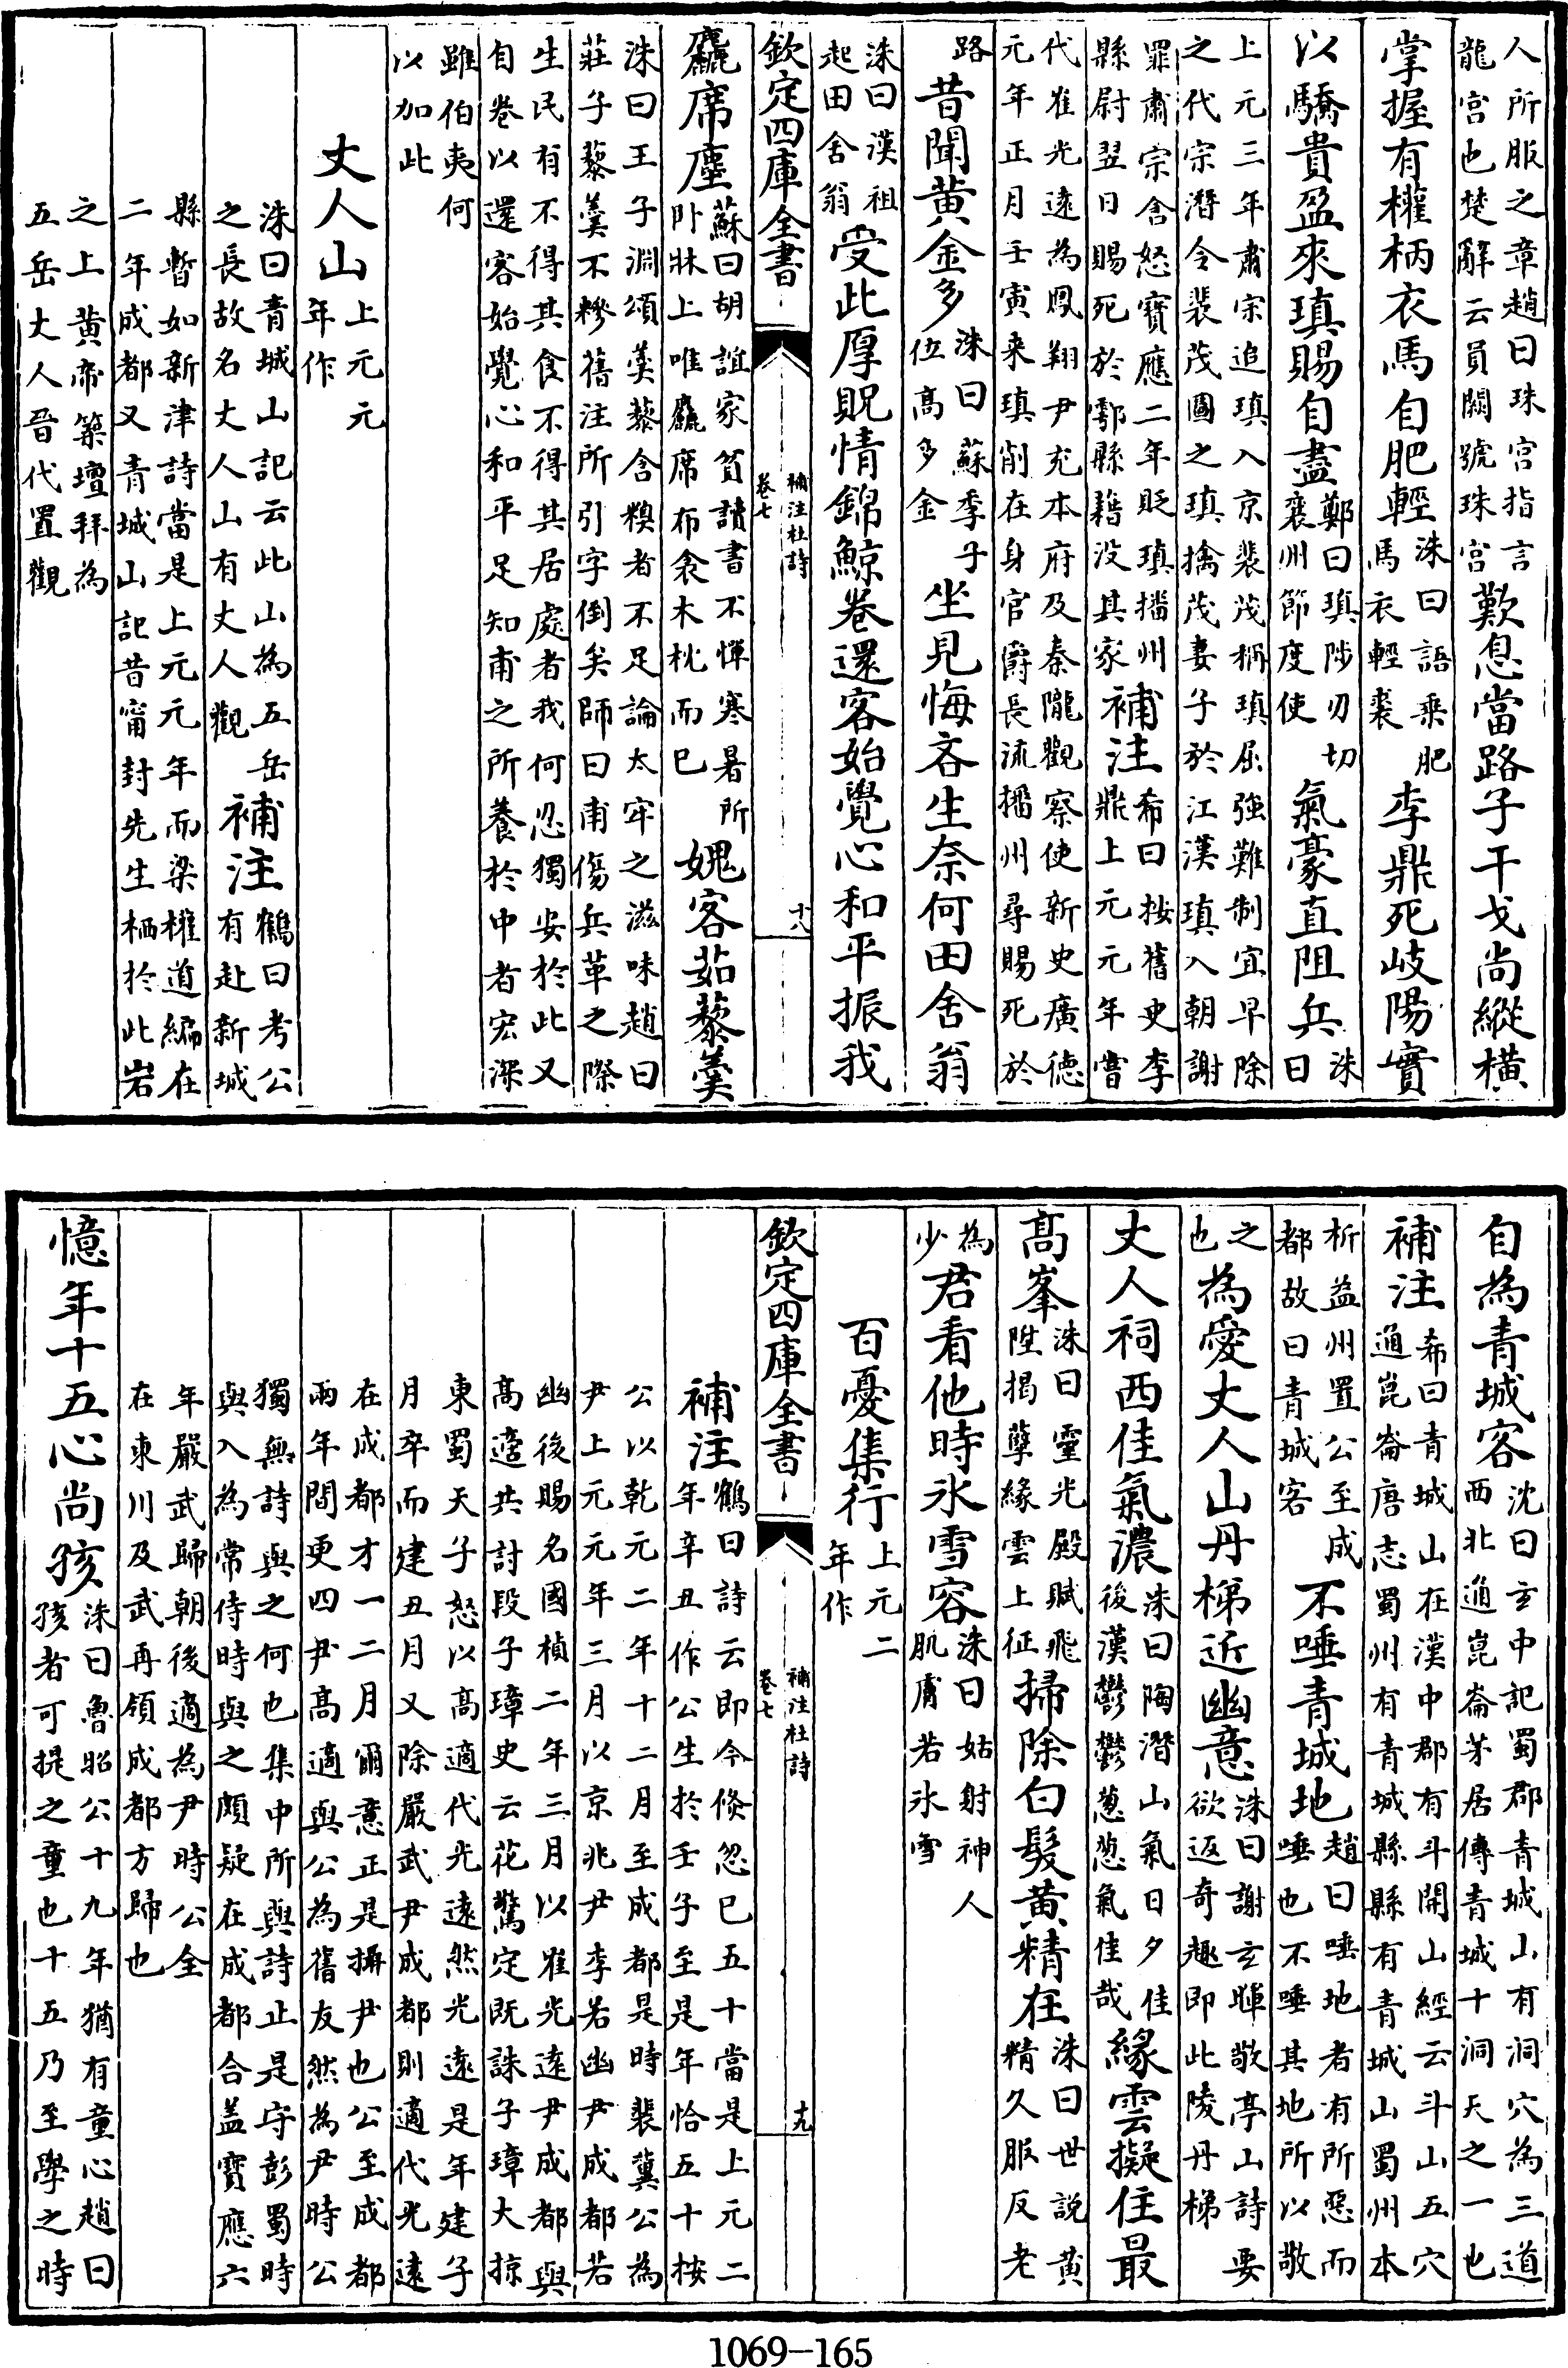 人所服之章趙曰珠宫指言龍宫也楚辭云員闕號珠宫歎息當路子干戈尚縱橫
掌握有權柄衣馬自肥輕洙曰語乘肥馬衣輕裘李鼎死岐陽實
以驕貴盈來瑱賜自盡鄭曰瑱陟刃切襄州節度使氣豪直阻兵洙曰
上元三年肅宗追瑱入京裴茂稱瑱屈強難制宜早除之代宗潛令裴茂圖之瑱擒茂妻子於江漢瑱入朝謝
罪肅宗含怒寶應二年貶瑱播州縣尉翌日賜死於鄠縣籍没其家補注希曰按舊史李鼎上元元年嘗
代崔光逺為鳳翔尹充本府及秦隴觀察使新史廣徳元年正月壬寅来瑱削在身官爵長流播州尋賜死於
路昔聞黄金多洙曰蘇季子位髙多金坐見悔吝生奈何田舍翁
洙曰漢祖起田舍翁受此厚貺情錦鯨卷還客始覺心和平振我
欽定四庫全書 補注杜詩 卷七 十八
麤席塵蘇曰胡誼家貧讀書不憚寒暑所卧牀上唯麤席布衾木枕而已媿客茹藜羮
洙曰王子淵頌羮藜含糗者不足論太牢之滋味趙曰莊子藜羮不糝舊注所引字倒矣師曰甫傷兵革之際
生民有不得其食不得其居處者我何忍獨安於此又自卷以還客始覺心和平足知甫之所養於中者宏深
雖伯夷何以加此
丈人山上元元年作
洙曰青城山記云此山為五岳之長故名丈人山有丈人觀補注鶴曰考公有赴新城
縣暫如新津詩當是上元元年而梁權道編在二年成都又青城山記昔甯封先生栖於此岩
之上黄帝築壇拜為五岳丈人晉代置觀
自為青城客沈曰玄中記蜀郡青城山有洞穴為三道西北通崑崙茅居傳青城十洞天之一也
補注希曰青城山在漢中郡有斗開山經云斗山五穴通崑崙唐志蜀州有青城縣縣有青城山蜀州本
析益州置公至成都故曰青城客不唾青城地趙曰唾地者有所惡而唾也不唾其地所以敬
之也為愛丈人山丹梯近幽意洙曰謝玄暉敬亭山詩要欲返奇趣即此陵丹梯
丈人祠西佳氣濃洙曰陶潛山氣日夕佳後漢鬱鬱蔥蔥氣佳哉緣雲擬住最
髙峯洙曰靈光殿賦飛陛揭孽緣雲上征掃除白髮黄精在洙曰世説黄精久服反老
為少君看他時氷雪容洙曰姑射神人肌膚若氷雪
百憂集行上元二年作
欽定四庫全書 補注杜詩 卷七 十九
補注鶴曰詩云即今倐忽已五十當是上元二年辛丑作公生於壬子至是年恰五十按
公以乾元二年十二月至成都是時裴冀公為尹上元元年三月以京兆尹李若幽尹成都若
幽後賜名國楨二年三月以崔光逺尹成都與髙適共討段子璋史云花驚定既誅子璋大掠
東蜀天子怒以高適代光逺然光逺是年建子月卒而建丑月又除嚴武尹成都則適代光逺
在成都才一二月爾意正是攝尹也公至成都兩年間更四尹髙適與公為舊友然為尹時公
獨無詩與之何也集中所與詩止是守彭蜀時與入為常侍時與之頗疑在成都合盖寶應六
年嚴武歸朝後適為尹時公全在東川及武再領成都方歸也
憶年十五心尚孩洙曰魯昭公十九年猶有童心趙曰孩者可提之童也十五乃至學之時
1069-165